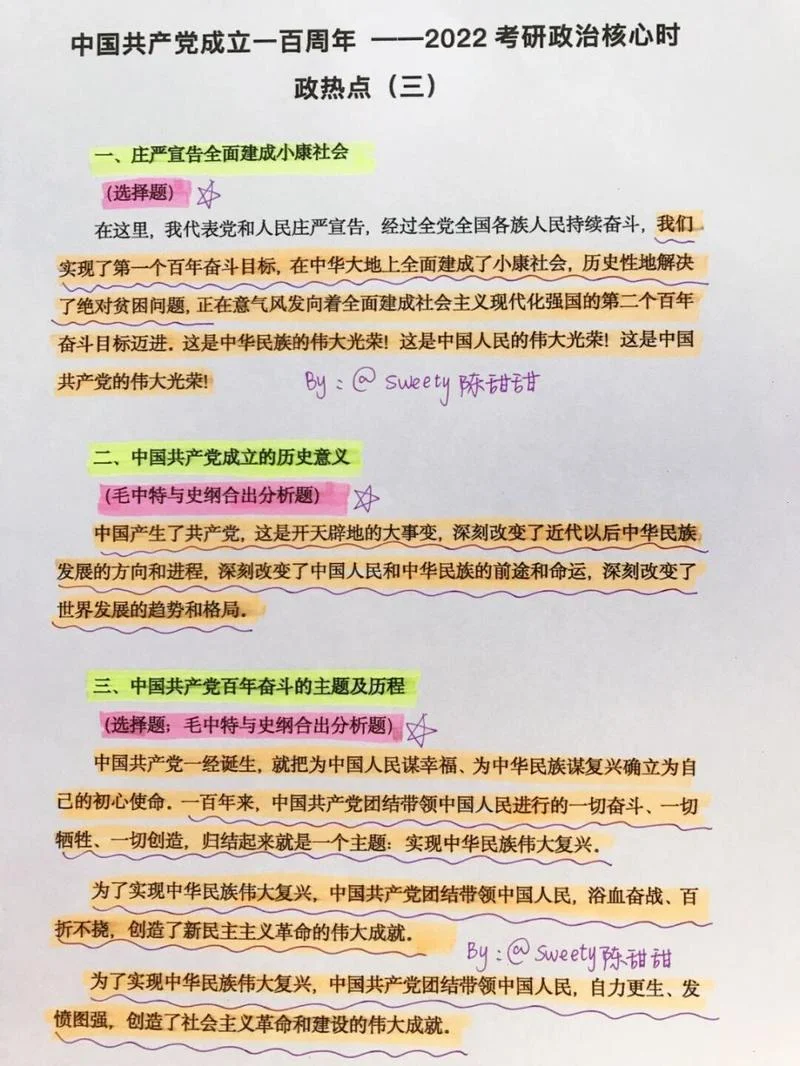 中国共产党成立一百周年 ——2022 考研政治核心时
政热点（三）
一、庄严宣告全面建成小康社会
（选择题）
在这里，我代表党和人民庄严宣告，经过全党全国各族人民持续奋斗，我们
实现了第一个百年奋斗目标，在中华大地上全面建成了小康社会，历史性地解决
了绝对贫困问题，正在意气风发向着全面建成社会主义现代化强国的第二个百年
奋斗目标迈进。这是中华民族的伟大光荣！这是中国人民的伟大光荣！这是中国
共产党的伟大光荣！
By：@ sweety陈甜甜
二、中国共产党成立的历史意义
（毛中特与史纲合出分析题）
中国产生了共产党，这是开天辟地的大事变，深刻改变了近代以后中华民族
发展的方向和进程，深刻改变了中国人民和中华民族的前途和命运，深刻改变了
世界发展的趋势和格局。
三、中国共产党百年奋斗的主题及历程
（选择题；毛中特与史纲合出分析题）
中国共产党一经诞生，就把为中国人民谋幸福、为中华民族谋复兴确立为自
己的初心使命。一百年来，中国共产党团结带领中国人民进行的一切奋斗、一切
牺牲、一切创造，归结起来就是一个主题：实现中华民族伟大复兴。
为了实现中华民族伟大复兴，中国共产党团结带领中国人民，浴血奋战、百
折不挠，创造了新民主主义革命的伟大成就。
By：@ sweety陈甜甜
为了实现中华民族伟大复兴，中国共产党团结带领中国人民，自力更生、发
愤图强，创造了社会主义革命和建设的伟大成就。